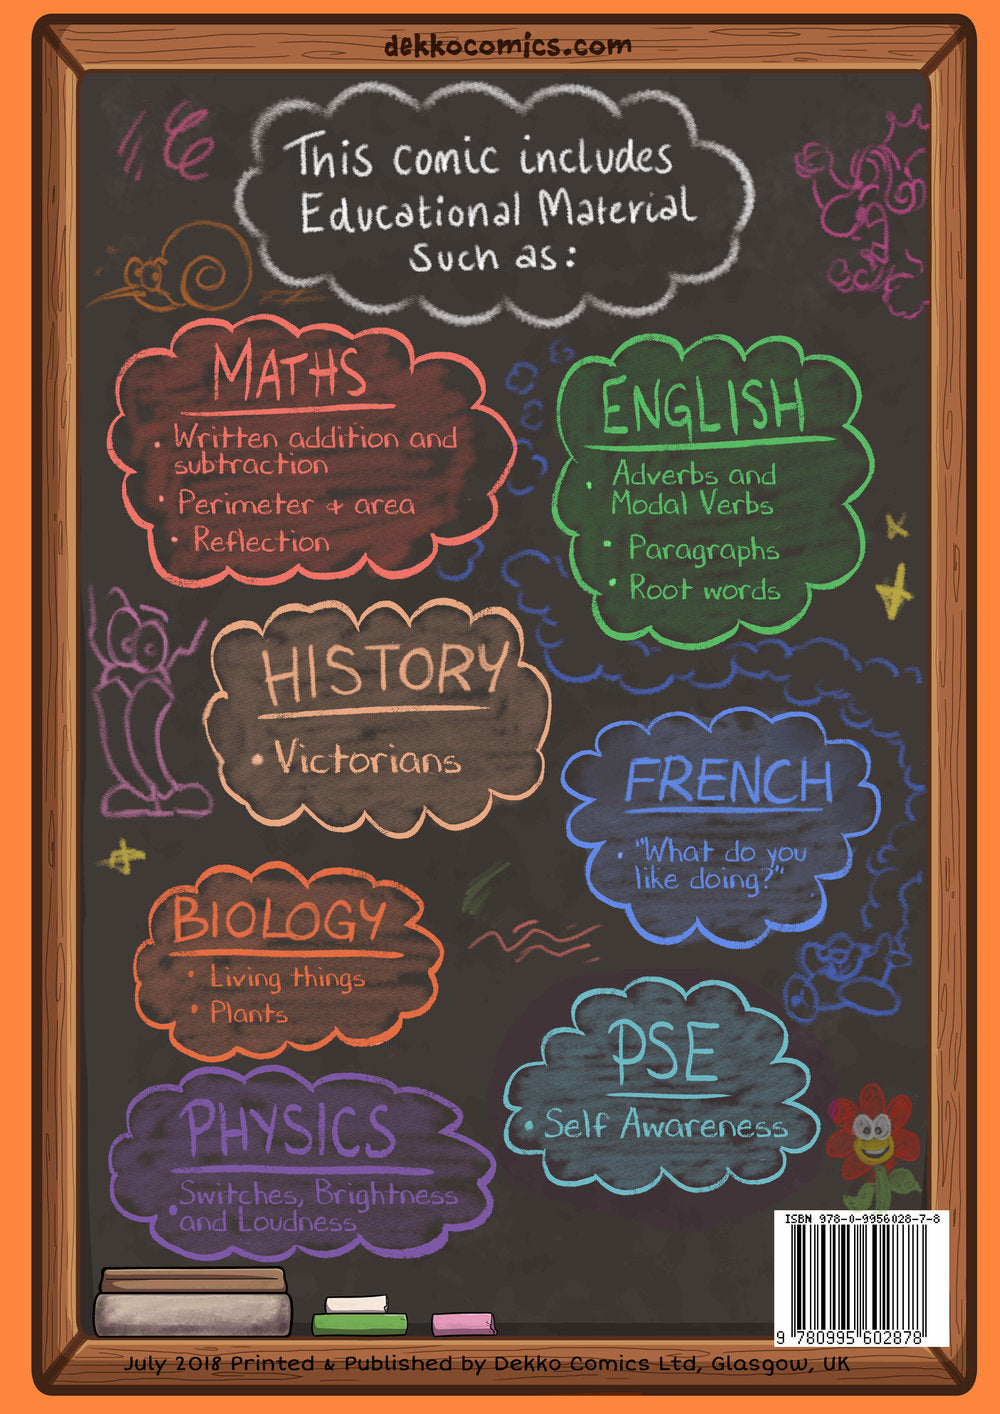 dekkocomics.com
This comic includes
Educational Material
Such as:
MATHS
• Written addition and
subtraction
• Perimeter & area
• Reflection
ENGLISH
• Adverbs and
Modal Verbs
• Paragraphs
• Root words
HISTORY
• Victorians
FRENCH
• "What do you
like doing?"
BIOLOGY
• Living things
• Plants
PSE
• Self Awareness
PHYSICS
• Switches, Brightness
and Loudness
ISBN 978-0-9956028-7-8
9 780995 602878
July 2018 Printed & Published by Dekko Comics Ltd, Glasgow, UK